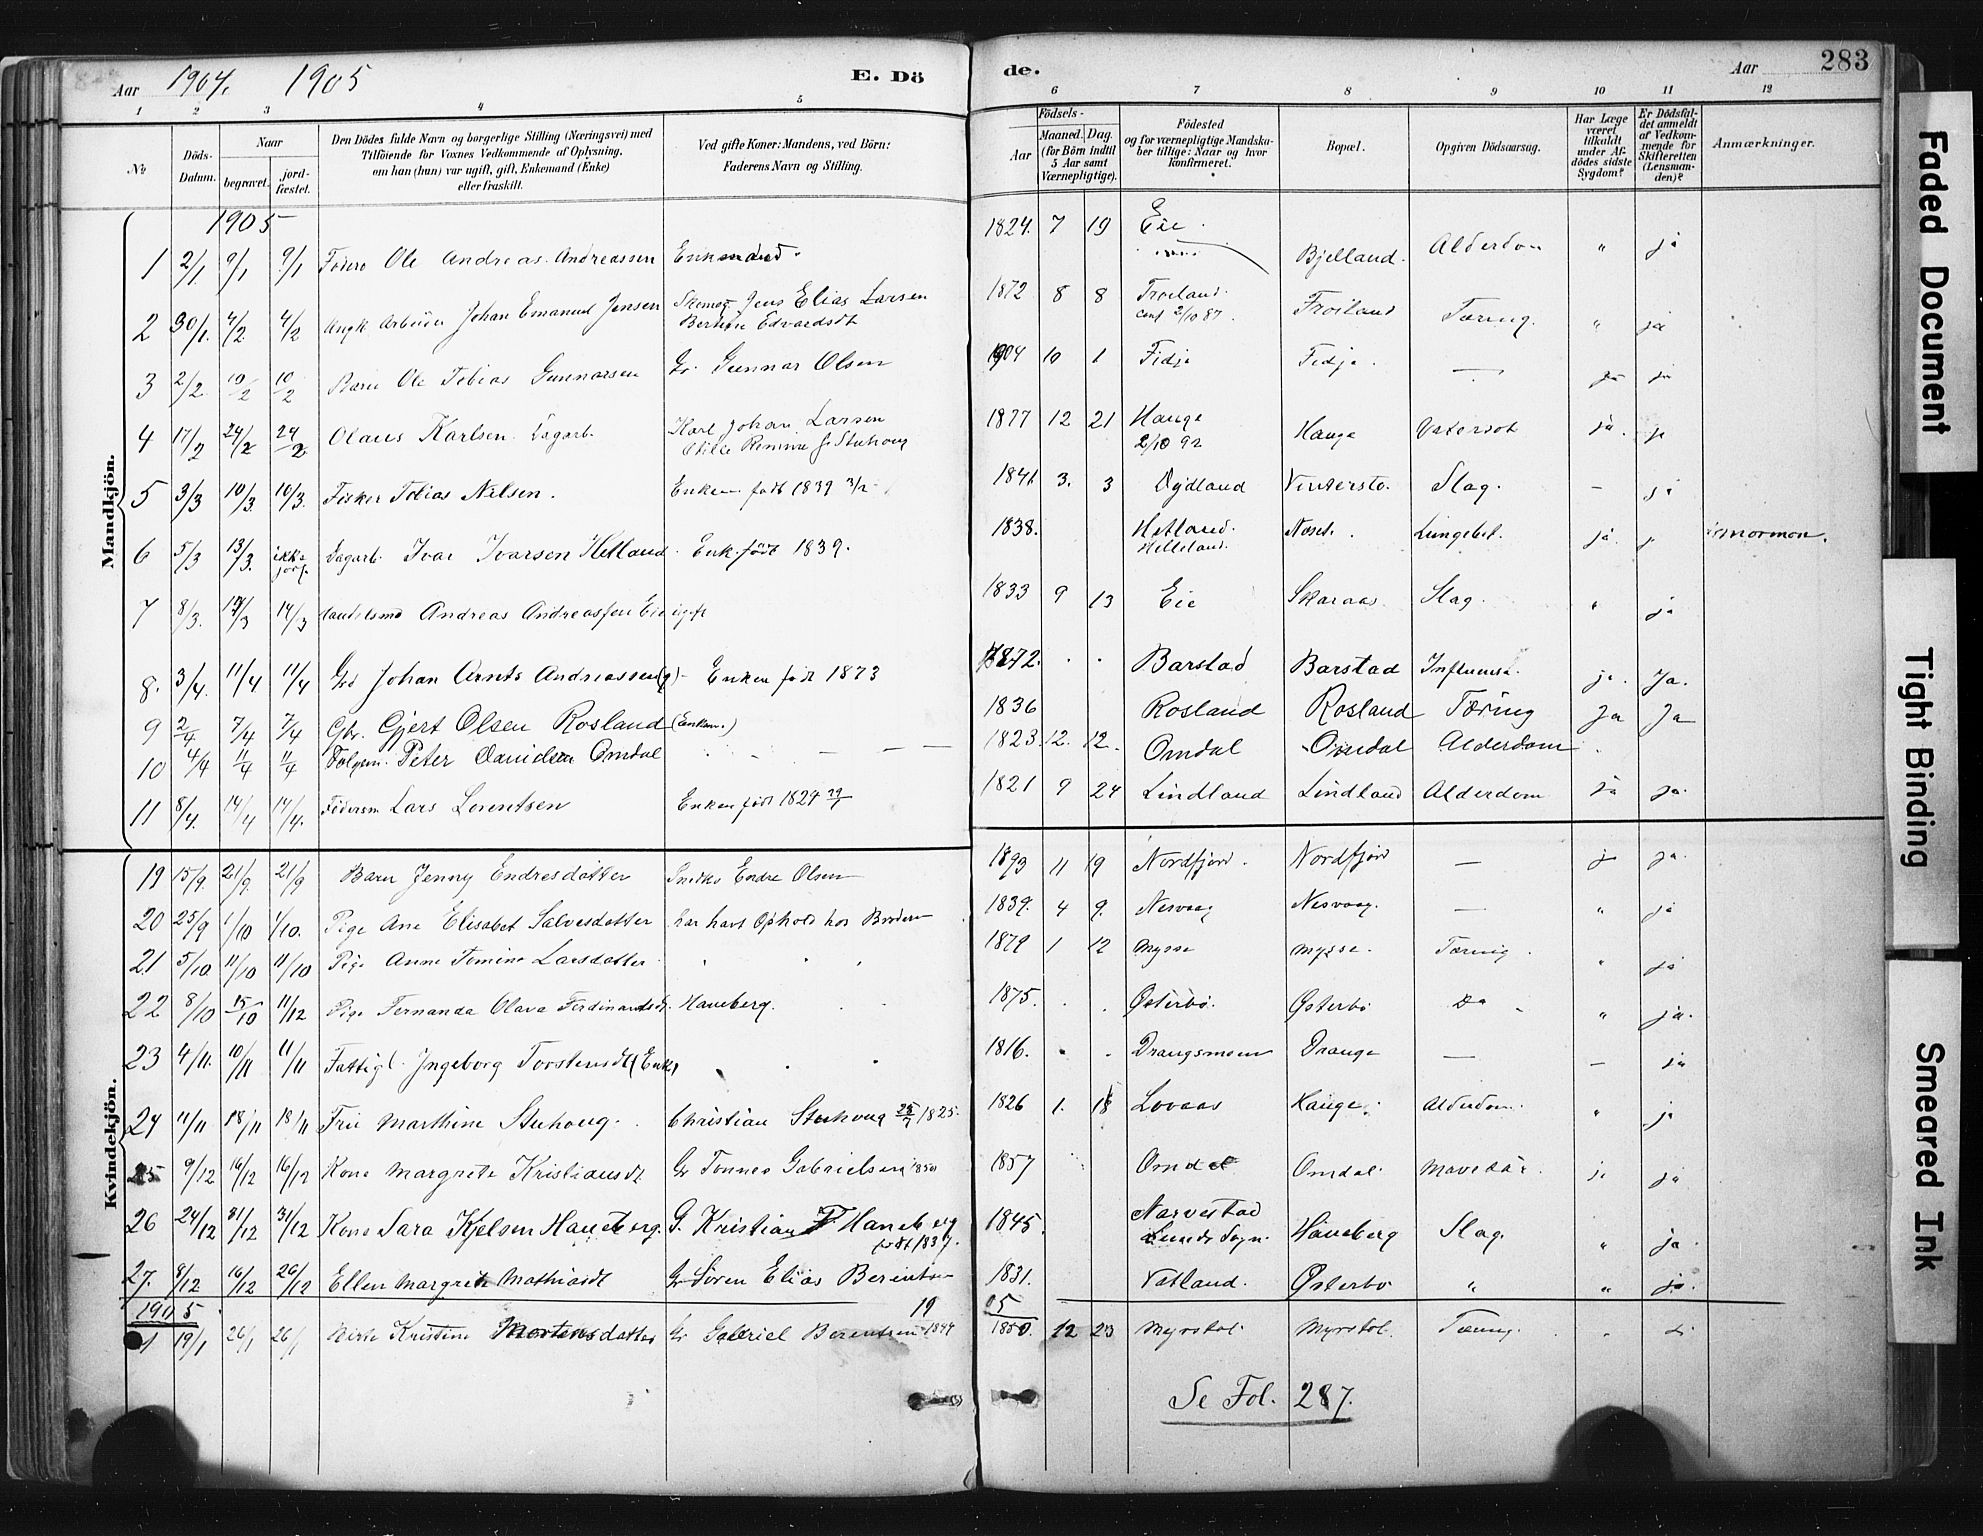 Aar 1904. 1905 E. Dö
de. Aar 283
1 2 3 4 5
6 7 8 9 10 11 12
No
Döds-Datum.
Naar
begravet.
jord-fæstet.
Den Dödes fulde Navn og borgerlige Stilling (Næringsvei) med
Tilföiende for Voxnes Vedkommende af Oplysning,
om han (hun) var ugift, gift, Enkemand (Enke)
eller fraskilt.
Ved gifte Koner: Mandens, ved Börn:
Faderens Navn og Stilling.
Födsels-
Aar
Maaned. Dag.
(for Börn indtil
5 Aar samt
Værnepligtige).
Födested
og for værnepligtige Mandska-
ber tillige: Naar og hvor
konfirmeret.
Bopæl.
Opgiven Dödsaarsag.
Har Læge
været
tilkaldt
under Af-
dödes sidste
Sygdom?
Er Dödsfal-
det anmeldt
af Vedkom-
mende for
Skifteretten
(Lensman-
den)?
Anmærkninger.
Mandkjön.
1905
1 2/1 9/1 9/1 Ole Andreas Andreassen Enkemand 1824. 7 19 Eie Bjelland. Alderdom " ja
2 30/1. 4/2 4/2 Ungk Arbeider Johan Emanuel Jensen Jens Elias Larsen
Edvardsdt 1872 8 8 Froiland Froiland Tæring. " ja
conf 2/10 87.
3 2/2 10/2 10/2 Barn Ole Tobias Gunnarsen Gr. Gunnar Olsen 1904 10 1 Fidje Fidje. — ja ja
4 17/2 24/2 24/2 Olaus Karlsen. Dagarb. Karl Johan Larsen
1877 12 21 Hauge Hauge ja. ja
2/10 92
5 3/3 10/3. 10/3. Fisker Tobias Nilsen. Enken født 1839 3/2 1841 3. 3 Dydland Slag. — ja
6 5/3 13/3. ikke jordf. Dagarb. Ivar Ivarsen Hetland. Enk. født 1839. 1838. Hetland. Lungebet. ja. mormon.
Helleland.
7 8/3. 14/3 Andreas Andreassen Eie ugift 1833 9 13 Eie Skaraas Slag. " ja
8. 3/4. 11/4 11/4 Gbr Johan Arnts Andreassen (g) - Enken født 1873 1872. Barstad Barstad Influensa. ja. Ja.
9 2/4 7/4 7/4 Gbr. Gjert Olsen Rosland (Enkem.) 1836 Rosland Rosland Tæring Ja Ja
10 4/4 11/4 11/4 Peter Danielsen Omdal — — — 1823. 12. 12. Omdal Omdal Alderdom
11 8/4. 14/4 14/4. Lars Lorentsen Enken født 1824 1821 9 24 Lindland Lindland Alderdom ja ja.
Kvindekjön.
19 15/9. 21/9. 21/9 Barn Jenny Endresdatter Snedker Endre Olsen 1893 11 19 Nordfjord. Nordfjord — ja ja.
20 25/9 1/10 1/10. Pige Ane Elisabet Salvesdatter har havt Ophold hos Broderen 1839. 4 9. Nesvaag Nesvaag. — " ja
21 5/10. 11/10 11/10 Pige Anne Tomine Larsdatter 1879 1 12 Mysse Mysse. Tæring. " ja
22 8/10 15/10 11/12 Pige Fernanda Olava Ferdinandsdt. Haneberg. 1875. Østerbø. Østerbø Do " ja.
23 4/11. 10/11 11/11 Fattigl. Ingeborg Torstensdt (Enke) 1816. Drangsmoen Drange — — ja
24 11/11 18/11 18/11 Fru Marthine Stuhoug. Christian Stuhoug 1825. 1826 1. 18 Lovaas Hauge. Alderdom. " ja
25 9/12 16/12 16/12 Kone Margrete Kristiansdt. Gr Tønnes Gabrielsen 1850 1857 Omdal Omdal ja ja
26 24/12 31/12 31/12 Kone Sara Kjelsen Haneberg. G. Kristian F Haneberg
født 1837. 1845. Narvestad Haneberg Slag. " ja.
Lunds Sogn.
27. 8/12 16/12 26/12 Ellen Margrete Mathiasdt Gr Søren Elias Berentsen 1831. Vatland. Østerbø " " ja.
1905 19 05
1 19/1 26/1 26/1 Kristine Mortensdatter Gr Gabriel Berentsen 1844 1850. 12 23 Myrstøl Myrstøl. Tæring. "
Se Fol. 287.
Faded Document
Tight Binding
Smeared Ink